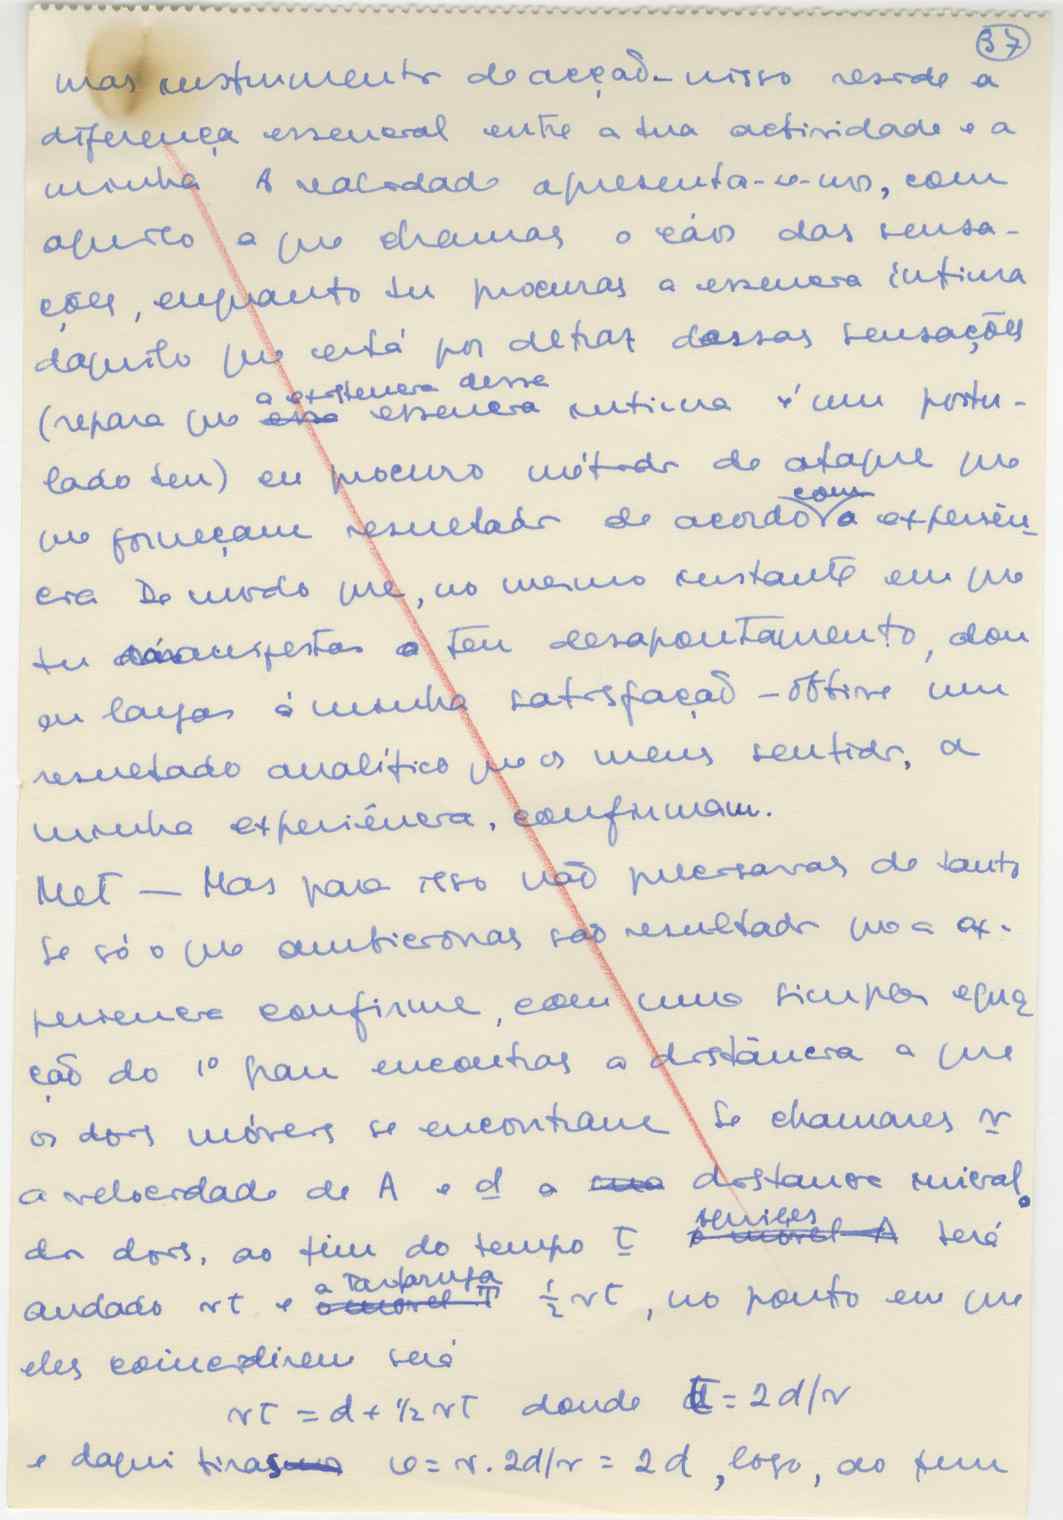 37
mas instrumento de acção - nisso reside a
diferença essencial entre a tua actividade e a
minha A realidade apresenta-se-nos, com
aquilo a que chamas o cáos das sensa-
ções, enquanto tu procuras a essencia íntima
daquilo que está por detraz dessas sensações
a existencia dessa
(repara que essa essencia intima é um postu-
lado teu) eu procuro métodos de ataque que
com
me forneçam resultados de acordo a experiên-
cia De modo que, no mesmo instante em que
tu manifestas o teu desapontamento, dou
eu largas á minha satisfação - obtive um
resultado analítico que os meus sentidos, a
minha experiência, confirmam.
MET — Mas para isso não precisavas de tanto
Se só o que ambicionas são resultados que a ex-
periencia confirme, com uma simples equa
ção do 1º grau encontras a distância a que
os dois móveis se encontram Se chamares v
a velocidade de A e d a distancia inicial
dos dois, ao fim do tempo t o móvel A terá
a Tartaruga
andado vt e o móvel T ½ vt, no ponto em que
eles coincidirem será
vt = d + 1/2 vt donde t = 2d/v
e daqui tiras e = v. 2d/v = 2d, logo, ao fim